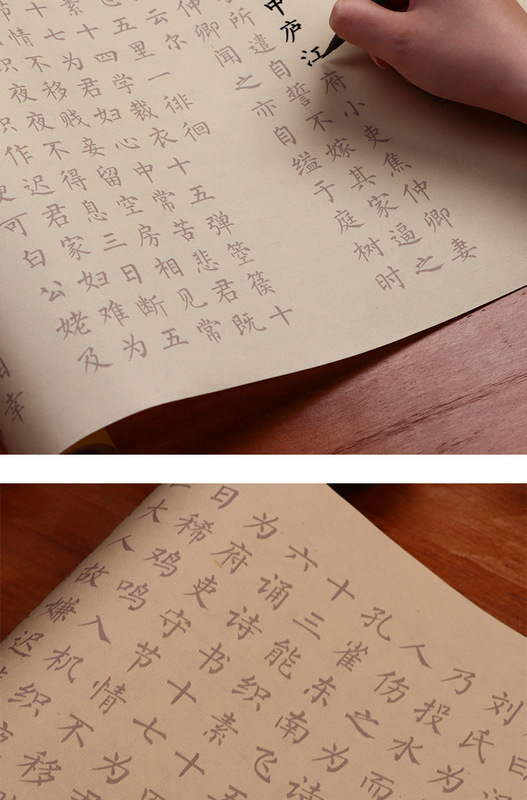 中庐江府小吏焦仲卿妻
所遣自誓不嫁其家逼之
闻之亦自缢于庭树时
仲卿
云尔
五里一徘徊
四学裁衣十五弹箜篌十
七为君妇心中常苦悲君既
情不移贱妾留空房相见常
织夜夜不得息三日断五
作迟君家妇难为
可白公姥及
刘氏为
乃投水而
人伤之为
孔雀东南飞
十三能织素十
六诵诗书十七为
为府吏守节情不移
曰稀鸡鸣入机织
大人故嫌迟